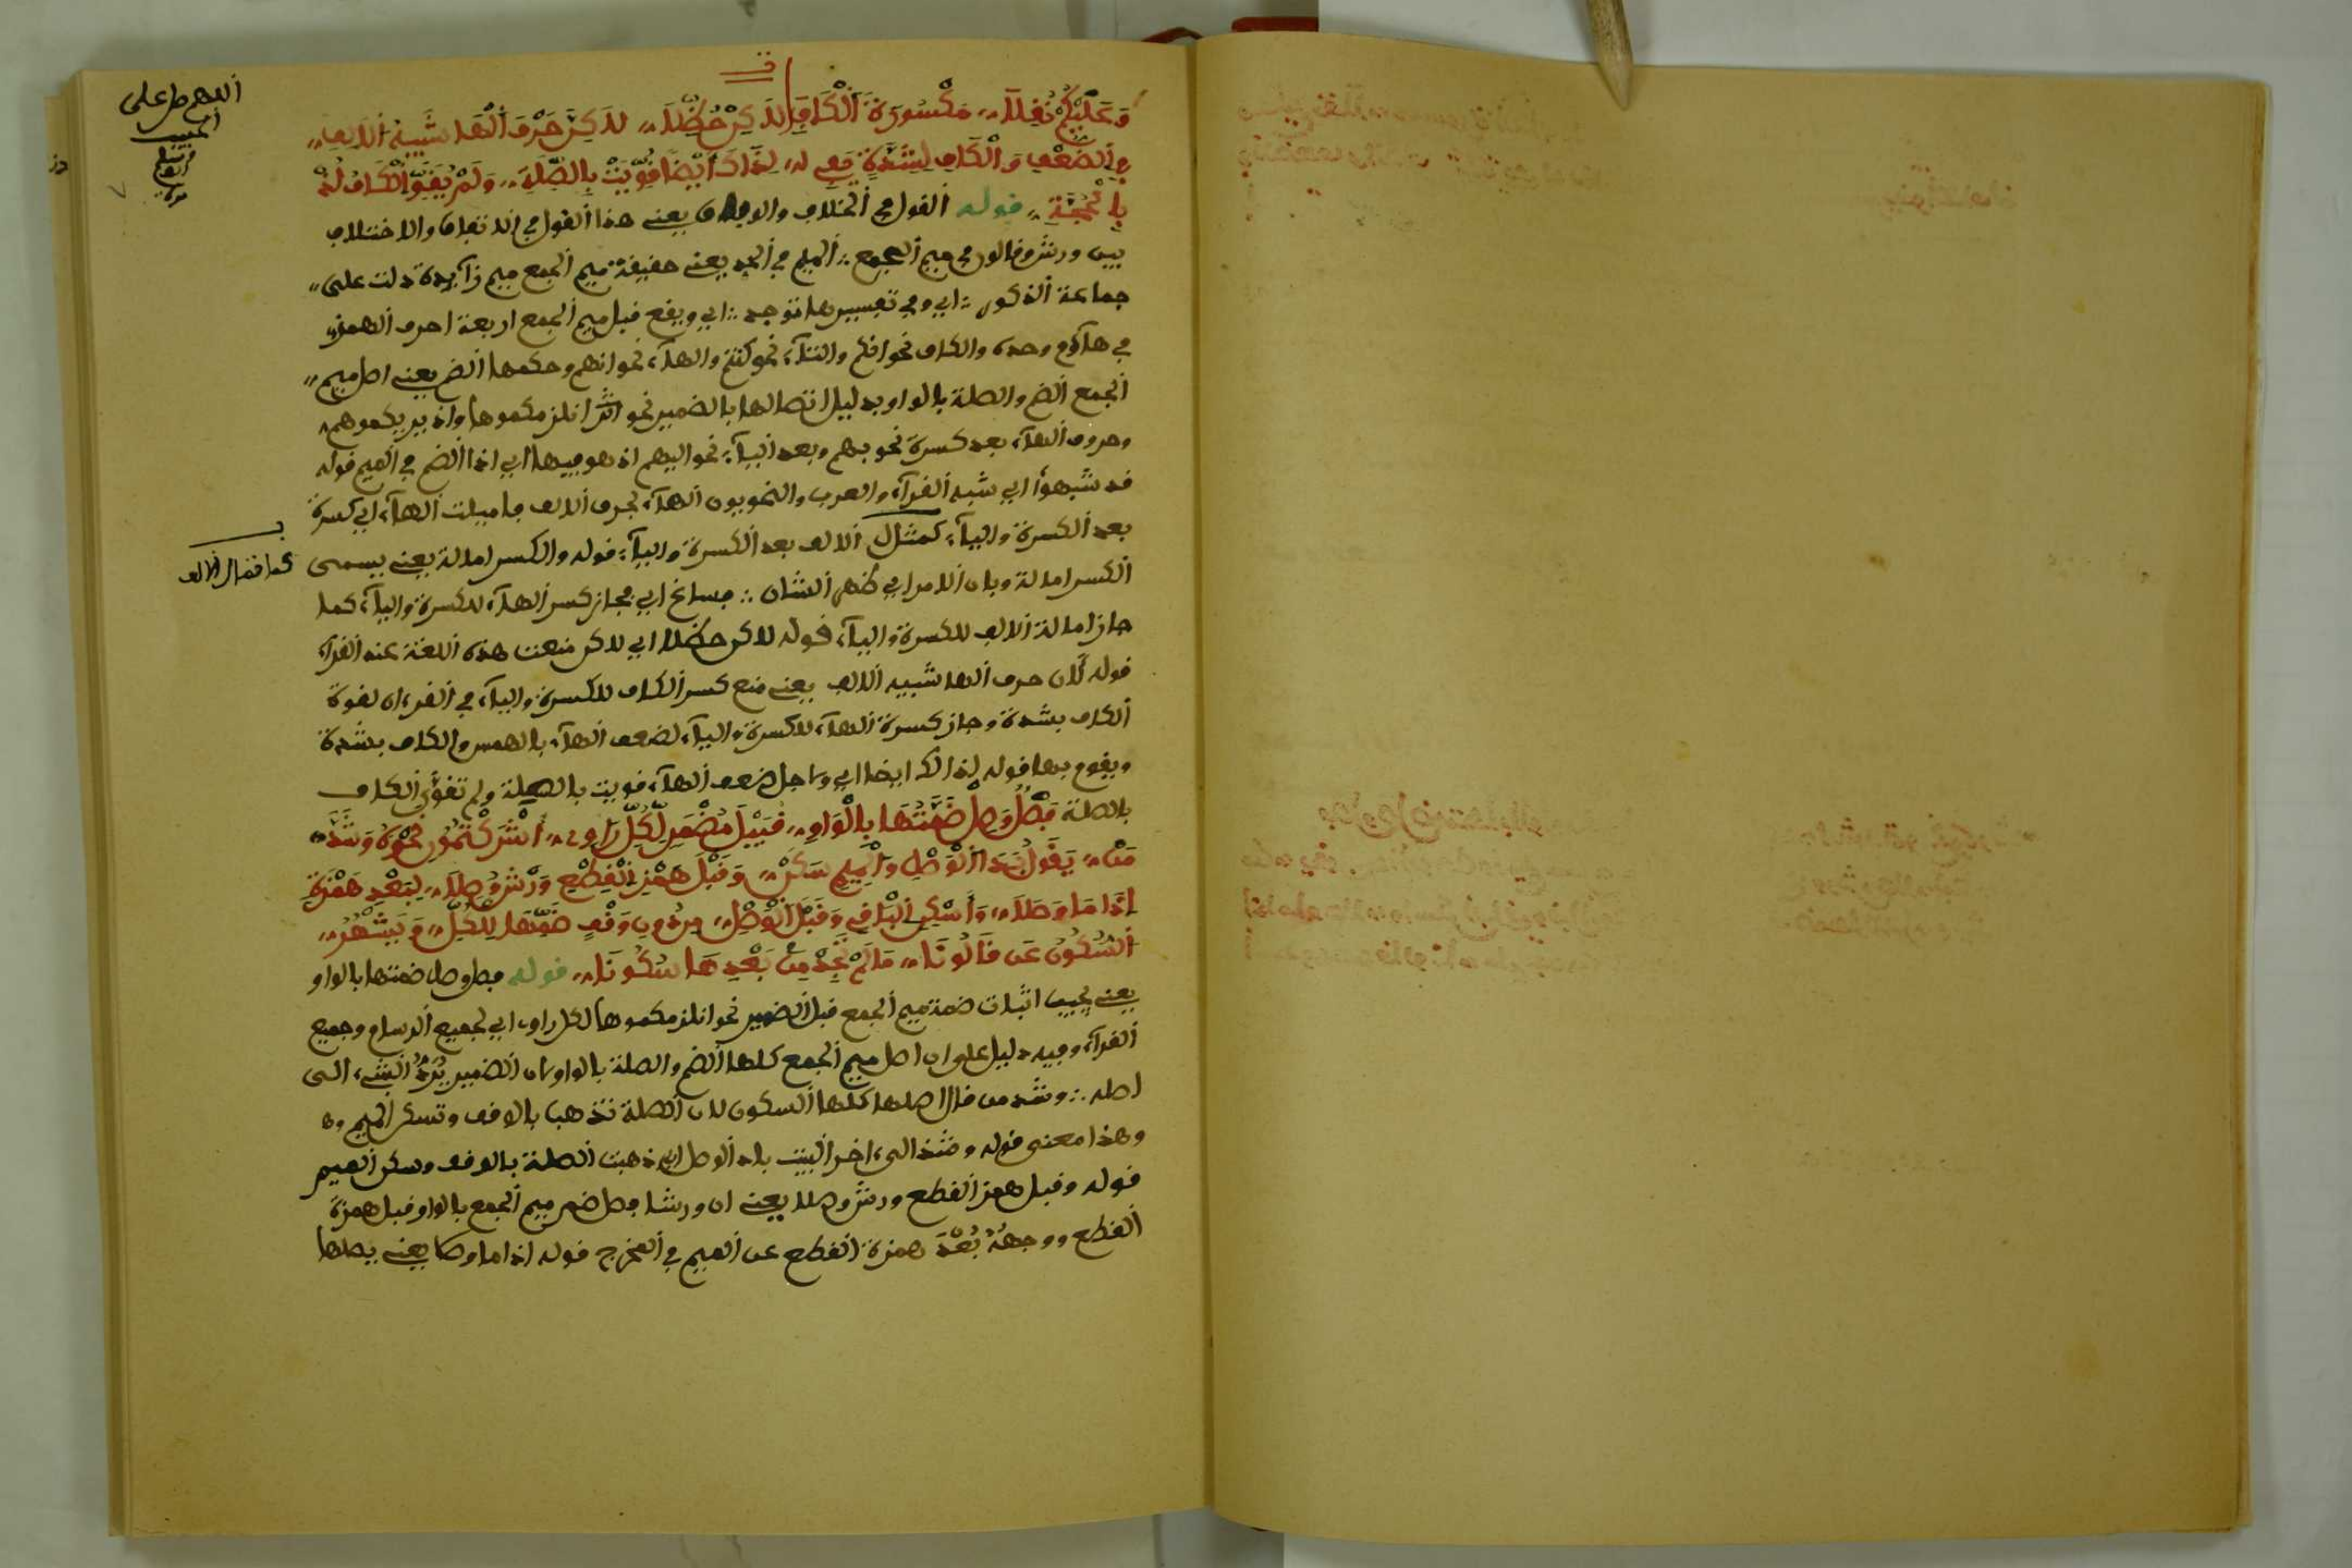 وَعَلَيْكُمْ نُفِلَا مَكْسُورَةَ اَلْكَافِ لَاكِنْ حُظِلَا لَاكِنَّ حَرْفَ اَلْهَا شَبِيهُ اَلَالِفِ
فِي اَلضُّعْفِ وَالْكَافُ لِشِدَّةٍ لِذَاكَ أَيْضاً قُوِّيَتْ بِالصِّلَةِ وَلَمْ يُقَوَّ اَلْكَافُ
قوله القول في الخلاف والوفاق يعني هذا القول في الاتفاق والاختلاف
بين ورش وقالون في ميم الجمع الميم في يعني حقيقة ميم الجمع ميم زآيدة دلت على
جماعة الذكور اي وفي تفسيرها توجد اي ويقع قبل ميم الجمع اربعة احرف الهمزة
في هآؤم وحده والكاف نحو انكم والتآء نحو كنتم والهآء نحو انهم وحكمها الضم يعني اصل ميم
الجمع الضم والصلة بالواو بدليل اتصالها بالضمير نحو انلزمكموها واذ يريكموهم
وحروف الهآء بعد كسرة نحو بهم وبعد اليآء نحو اليهم اذ هو فيها اي اذا الضم في الميم قوله
قد شبهوا اي شبه القرآء والعرب والنحويون الهآء بحرف الالف فاميلت الهآء اي كسرة
بعد الكسرة واليآء كمثل الالف بعد الكسرة واليآء قوله والكسر امالة يعني يسمى
الكسر امالة وبان الامر اي ظهر الشان فساغ اي فجاز كسر الهآء للكسرة واليآء كما
جاز امالة الالف للكسرة واليآء قوله لاكن حظلا اي لاكن منعت هذه اللغة عند القرآء
قوله لان حرف الها شبيه الالف يعني منع كسر الكاف للكسرة واليآء في القرءان لقوة
الكاف بشدة وجاز كسرة الهآء للكسرة واليآء لضعف الهآء بالهمس والكاف بشدة
قوله لذالك ايضا اي ضعف الهآء قويت بالصلة ولم تقو الكاف
بالصلة فَصِلْ وَصِلْ ضَمَّتَهَا بِالْوَاوِ قُبَيْلَ مُضْمَرٍ لِكُلِّ رَاوِي أَشْرَكْتُمُونِ نَحْوُهُ وَشَذَّ
مَنْ يَقُولُ اَلْوَصْلِ وَالْمِيمِ سَكَنْ وَقَبْلَ هَمْزِ اِلْقَطْعِ وَرْشٌ وَصَلَا لِبُعْدِ هَمْزَةٍ
إِذَا مَا وَصَلَا وَأَسْكِنِ اِلْبَاقِي وَقَبْلَ اَلْوَصْلِ مِن دُونِ وَقْفٍ ضَمُّهَا لِلْكُلِّ وَيُشْهَرُ
اَلسُّكُونُ عَن قَالُونَا مَا لَمْ تَجِدْ مِن بَعْدِهَا سُكُونَا قوله فصل وصل ضمتها بالواو
يعني يجب اثبات ضمة ميم الجمع قبل الضمير نحو انلزمكموها لكل راو اي لجميع وجميع
القرآء وفيه دليل على ان اصل ميم الجمع كلها الضم والصلة بالواو لان الضمير يَرُدُّ الشيء الى
اصله وشذ من قال اصلها كلها السكون لان الصلة تذهب بالوقف وتسكن الميم
وهذا معنى قوله وشذ الى ءاخر البيت الوصل اي ذهبت الصلة بالوقف وسكن الميم
قوله وقبل همز القطع ورش وصلا يعني ان ورشا وصل ضم ميم الجمع بالواو قبل همزة
القطع ووجهُهُ بُعْدُ همزة القطع عن الميم في المخرج قوله اذا ما وصلا يعني يصلها
اللهم صل على
الحبيب
كما تمال الالف